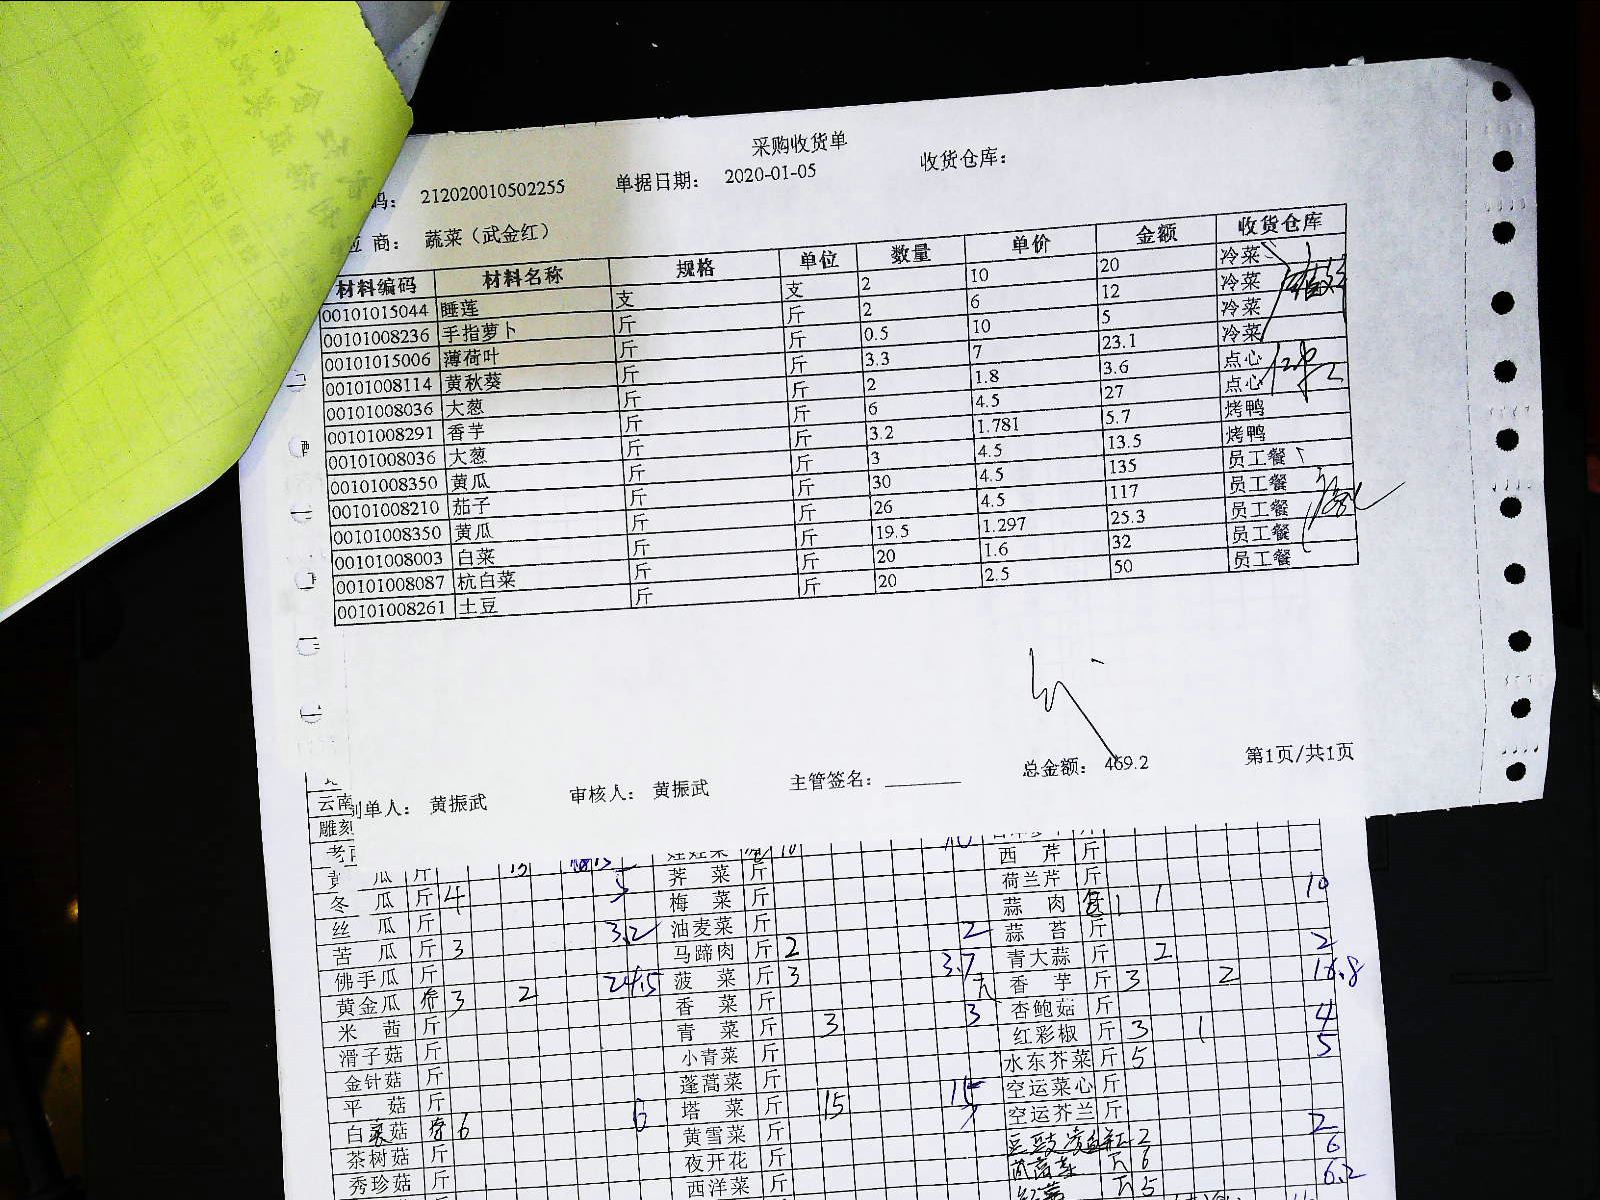 采购收货单
码： 212020010502255 单据日期： 2020-01-05 收货仓库：
应 商： 蔬菜（武金红）
材料编码 材料名称 规格 单位 数量 单价 金额 收货仓库
00101015044 睡莲 支 支 2 10 20 冷菜
00101008236 手指萝卜 斤 斤 2 6 12 冷菜
00101015006 薄荷叶 斤 斤 0.5 10 5 冷菜
00101008114 黄秋葵 斤 斤 3.3 7 23.1 冷菜
00101008036 大葱 斤 斤 2 1.8 3.6 点心
00101008291 香芋 斤 斤 6 4.5 27 点心
00101008036 大葱 斤 斤 3.2 1.781 5.7 烤鸭
00101008350 黄瓜 斤 斤 3 4.5 13.5 烤鸭
00101008210 茄子 斤 斤 30 4.5 135 员工餐
00101008350 黄瓜 斤 斤 26 4.5 117 员工餐
00101008003 白菜 斤 斤 19.5 1.297 25.3 员工餐
00101008087 杭白菜 斤 斤 20 1.6 32 员工餐
00101008261 土豆 斤 斤 20 2.5 50 员工餐
总金额： 469.2 第1页/共1页
制单人： 黄振武 审核人： 黄振武 主管签名：
云南
雕刻
西 芹 斤
瓜 斤 荠 菜 斤 荷兰芹 斤
冬 瓜 斤 4 5 梅 菜 斤 蒜 肉 1 1 10
丝 瓜 斤 3.2 油麦菜 斤 2 蒜 苔 斤
苦 瓜 斤 3 马蹄肉 斤 2 青大蒜 斤 2 2
佛手瓜 斤 24.5 菠 菜 斤 3 3.7 香 芋 斤 3 2 16.8
黄金瓜 3 2 香 菜 斤 杏鲍菇 斤
米 茴 斤 青 菜 斤 3 3 红彩椒 斤 3 1 4
滑子菇 斤 小青菜 斤 水东芥菜 斤 5 5
金针菇 斤 蓬蒿菜 斤 空运菜心 斤
平 菇 斤 塔 菜 斤 15 15 空运芥兰 斤
白 菇 6 6 黄雪菜 斤 2 2
茶树菇 斤 夜开花 斤 6 6
秀珍菇 斤 西洋菜 斤 5 6.2